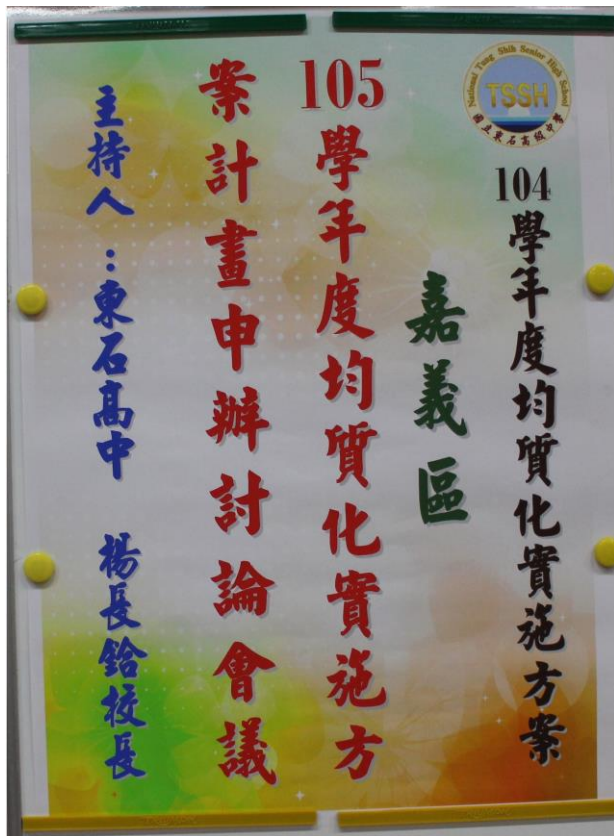 National Tung Shih Senior High School
TSSH
國立東石高級中學
104學年度均質化實施方案
嘉義區
105學年度均質化實施方
案計畫申辦討論會議
主持人：東石高中 楊長鉿校長